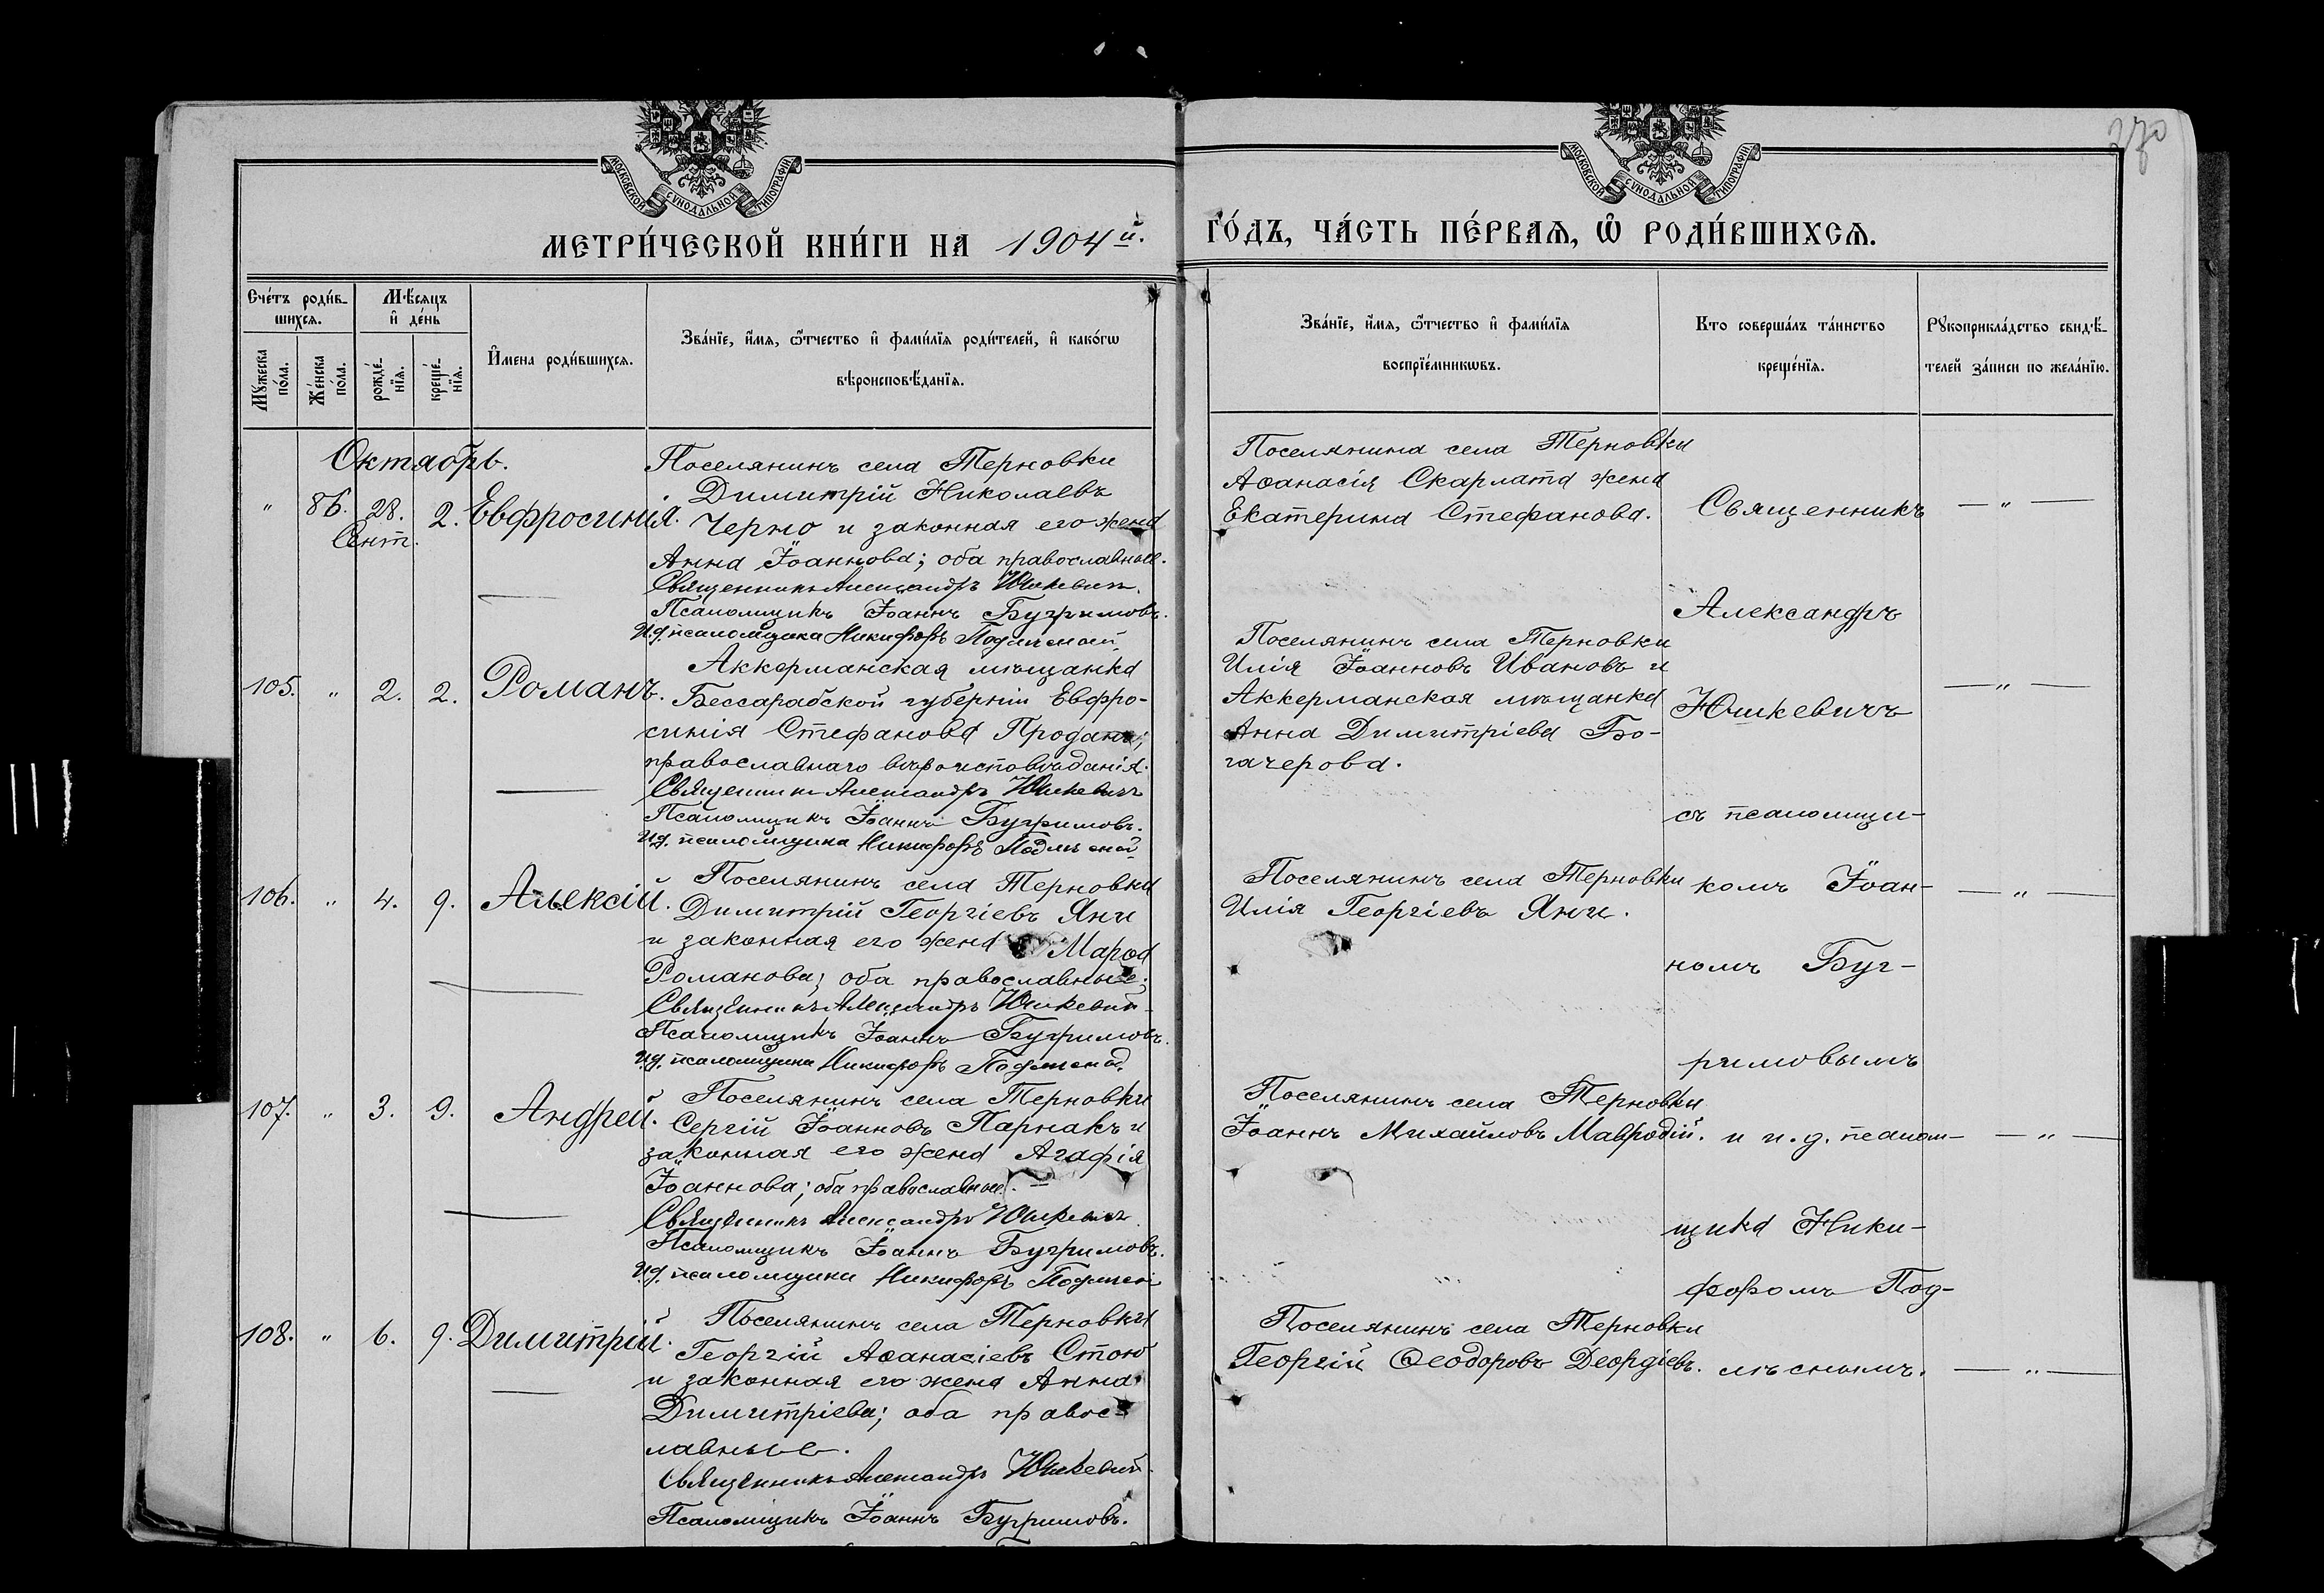 270
МОСКОВСКОЙ СУНОДАЛЬНОЙ ТИПОГРАФІИ
МОСКОВСКОЙ СУНОДАЛЬНОЙ ТИПОГРАФІИ
МЕТРИ́ЧЕСКОЙ КНИ́ГИ НА 1904й.
ГО́ДЪ, ЧА́СТЬ ПЕ́РВАѦ, Ѡ҆ РОДИ́ВШИХСѦ.
Сче́тъ роди́в-
шихсѧ.
Мꙋжеска по́ла.
Же́нска по́ла.
Мѣ́сяцъ
и҆ де́нь
рожде́-нїѧ.
креще́-нїѧ.
И҆́мена роди́вшихсѧ.
Зва́нїе, и҆́мѧ, ѻ҆́тчество и҆ фами́лїѧ роди́телей, и҆ како́гѡ
вѣроисповѣ́данїѧ.
Зва́нїе, и҆́мѧ, ѻ҆́тчество и҆ фами́лїѧ
воспрїе́мникѡвъ.
Кто соверша́лъ та́инство
креще́нїѧ.
Рꙋкоприкла́дство свидѣ́-
телей за́писи по жела́нїю.
Октябрь.
" 86. 28. Сент. 2. Евфросинія.
Поселянинъ села Терновки
Димитрій Николаевъ
Черно и законная его жена
Анна Іоаннова; оба православные.
Священникъ Александръ Юшкевич
Псаломщикъ Іоаннъ Бугримовъ.
И.д. псаломщика Никифоръ
Поселянина села Терновки
Аѳанасія Скарлата жена
Екатерина Стефанова.
— " —
105. " 2. 2. Романъ.
Аккерманская мѣщанка
Бессарабской губерніи Евфро-
синія Стефанова Проданъ;
православнаго вѣроисповѣданія.
Священникъ Александръ Юшкевичъ
Псаломщикъ Іоаннъ Бугримовъ.
И.д. псаломщика Никифоръ
Поселянинъ села Терновки
Илія Іоанновъ Ивановъ и
Аккерманская мѣщанка
Анна Димитріева Бо-
гачерова.
— " —
106. " 4. 9. Алексій.
Поселянинъ села Терновки
Димитрій Георгіевъ Яни
и законная его жена Марѳа
Романова; оба православные.
Священникъ Александръ Юшкевич
Псаломщикъ Іоаннъ Бугримовъ.
И.д. псаломщика Никифоръ
Поселянинъ села Терновки
Илія Георгіевъ Яни.
— " —
107. " 3. 9. Андрей.
Поселянинъ села Терновки
Сергій Іоанновъ Парнакъ и
законная его жена Агафія
Іоаннова; оба православные. —
Священникъ Александръ Юшкевич
Псаломщикъ Іоаннъ Бугримовъ.
И.д. псаломщика Никифоръ
Поселянинъ села Терновки
Іоаннъ Михайловъ Мавродій.
— " —
108. " 6. 9. Димитрій.
Поселянинъ села Терновки
Георгій Аѳанасіевъ Стою
и законная его жена Анна
Димитріева; оба правос-
лавные.
Священникъ Александръ Юшкевич
Псаломщикъ Іоаннъ Бугримовъ.
Поселянинъ села Терновки
Георгій Ѳеодоровъ Деордіевъ.
— " —
Священникъ
Александръ
Юшкевичъ
съ псаломщи-
комъ Іоан-
номъ Буг-
римовымъ
и и.д. псалом-
щика Ники-
форомъ Под-
лѣснымъ.